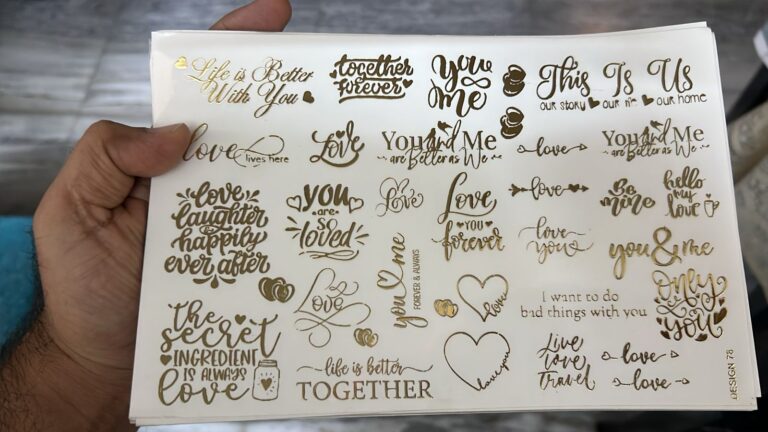 Life is Better
With You
together
forever
You
& me
This Is Us
our story our me our home
love
lives here
Love
You and Me
are Better as We
love
You and Me
are Better as We
love
laughter
& happily
ever after
you
are
so
loved
Love
Love
YOU
forever
love
Be
mine
hello
my
love
love
you
you & me
you me
FOREVER & ALWAYS
Love
love
I want to do
bad things with you
Only
You
the
secret
INGREDIENT
IS ALWAYS
love
life is better
TOGETHER
love you
Live
love
Travel
love
love
DESIGN 78